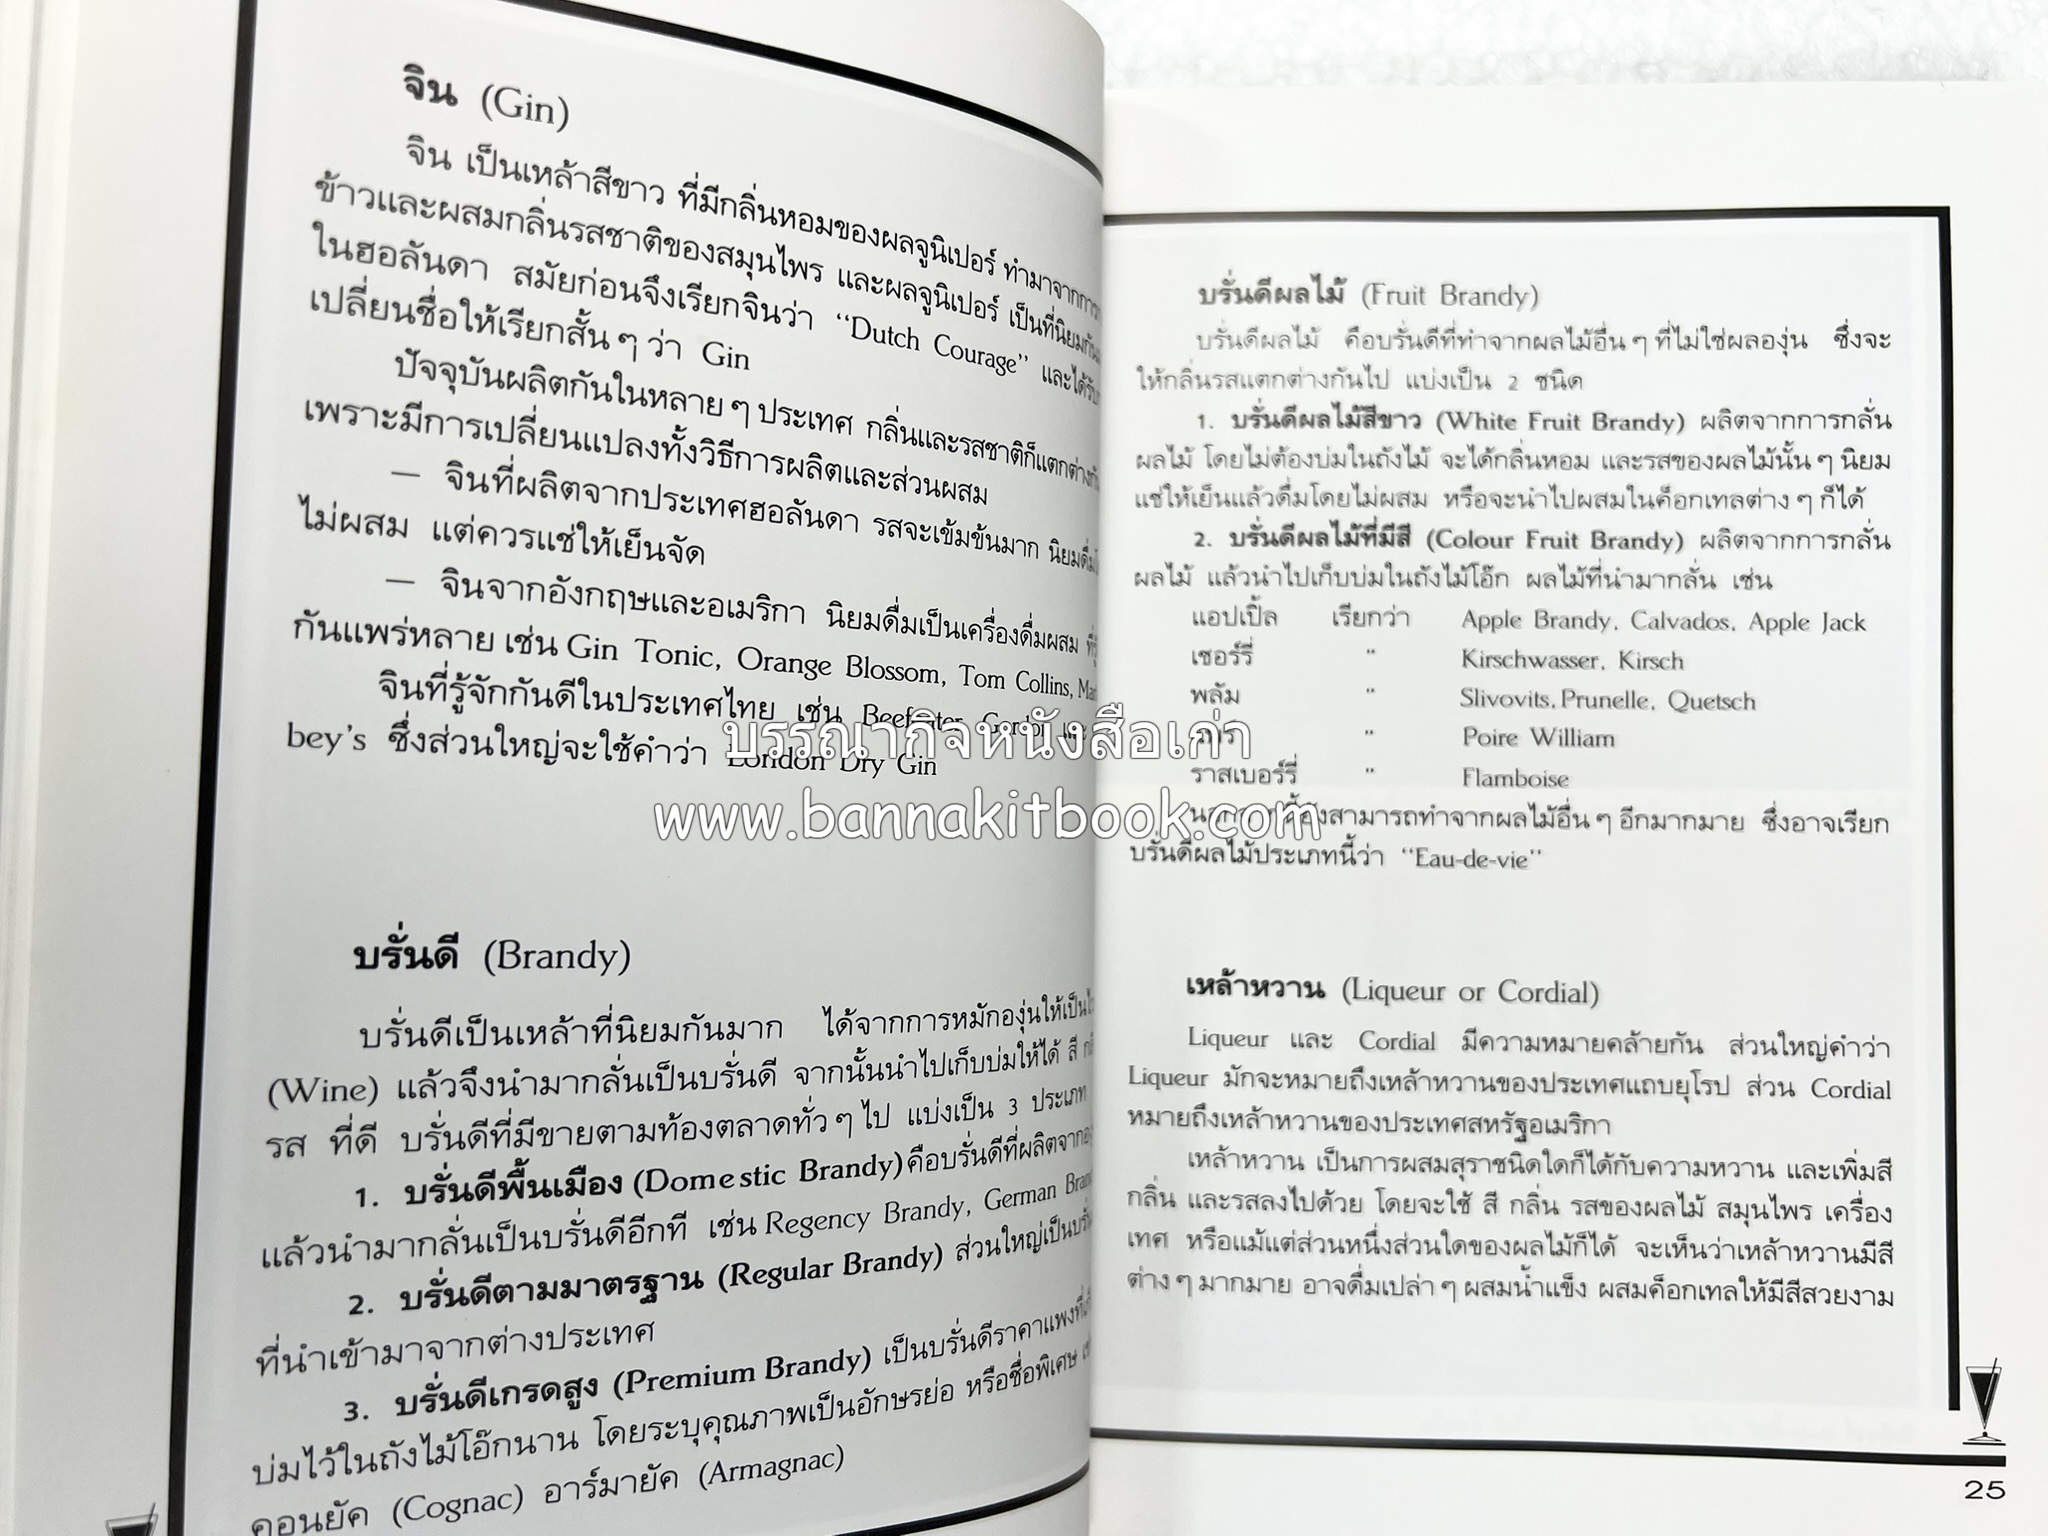 จิน (Gin)
จิน เป็นเหล้าสีขาว ที่มีกลิ่นหอมของผลจูนิเปอร์ ทำมาจากการ
ข้าวและผสมกลิ่นรสชาติของสมุนไพร และผลจูนิเปอร์ เป็นที่นิยมกัน
ในฮอลันดา สมัยก่อนจึงเรียกจินว่า “Dutch Courage” และได้รับ
เปลี่ยนชื่อให้เรียกสั้น ๆ ว่า Gin
ปัจจุบันผลิตกันในหลาย ๆ ประเทศ กลิ่นและรสชาติก็แตกต่างกัน
เพราะมีการเปลี่ยนแปลงทั้งวิธีการผลิตและส่วนผสม
— จินที่ผลิตจากประเทศฮอลันดา รสจะเข้มข้นมาก นิยมดื่ม
ไม่ผสม แต่ควรแช่ให้เย็นจัด
— จินจากอังกฤษและอเมริกา นิยมดื่มเป็นเครื่องดื่มผสม ที่
กันแพร่หลาย เช่น Gin Tonic, Orange Blossom, Tom Collins,
จินที่รู้จักกันดีในประเทศไทย เช่น Beefeater, Gordon และ
bey’s ซึ่งส่วนใหญ่จะใช้คำว่า London Dry Gin
บรั่นดี (Brandy)
บรั่นดีเป็นเหล้าที่นิยมกันมาก ได้จากการหมักองุ่นให้เป็น
(Wine) แล้วจึงนำมากลั่นเป็นบรั่นดี จากนั้นนำไปเก็บบ่มให้ได้ สี
รส ที่ดี บรั่นดีที่มีขายตามท้องตลาดทั่ว ๆ ไป แบ่งเป็น 3 ประเภท
1. บรั่นดีพื้นเมือง (Domestic Brandy) คือบรั่นดีที่ผลิตจาก
แล้วนำมากลั่นเป็นบรั่นดีอีกที เช่น Regency Brandy, German
2. บรั่นดีตามมาตรฐาน (Regular Brandy) ส่วนใหญ่เป็น
ที่นำเข้ามาจากต่างประเทศ
3. บรั่นดีเกรดสูง (Premium Brandy) เป็นบรั่นดีราคาแพง
บ่มไว้ในถังไม้โอ๊กนาน โดยระบุคุณภาพเป็นอักษรย่อ หรือชื่อพิเศษ
คอนยัค (Cognac) อาร์มายัค (Armagnac)
บรั่นดีผลไม้ (Fruit Brandy)
บรั่นดีผลไม้ คือบรั่นดีที่ทำจากผลไม้อื่น ๆ ที่ไม่ใช่ผลองุ่น ซึ่งจะ
ให้กลิ่นรสแตกต่างกันไป แบ่งเป็น 2 ชนิด
1. บรั่นดีผลไม้สีขาว (White Fruit Brandy) ผลิตจากการกลั่น
ผลไม้ โดยไม่ต้องบ่มในถังไม้ จะได้กลิ่นหอม และรสของผลไม้นั้น ๆ นิยม
แช่ให้เย็นแล้วดื่มโดยไม่ผสม หรือจะนำไปผสมในค็อกเทลต่าง ๆ ก็ได้
2. บรั่นดีผลไม้ที่มีสี (Colour Fruit Brandy) ผลิตจากการกลั่น
ผลไม้ แล้วนำไปเก็บบ่มในถังไม้โอ๊ก ผลไม้ที่นำมากลั่น เช่น
แอปเปิ้ล เรียกว่า Apple Brandy, Calvados, Apple Jack
เชอร์รี่ " Kirschwasser, Kirsch
พลัม " Slivovits, Prunelle, Quetsch
" Poire William
ราสเบอร์รี่ " Flamboise
นอกจากนี้ยังสามารถทำจากผลไม้อื่น ๆ อีกมากมาย ซึ่งอาจเรียก
บรั่นดีผลไม้ประเภทนี้ว่า “Eau-de-vie”
เหล้าหวาน (Liqueur or Cordial)
Liqueur และ Cordial มีความหมายคล้ายกัน ส่วนใหญ่คำว่า
Liqueur มักจะหมายถึงเหล้าหวานของประเทศแถบยุโรป ส่วน Cordial
หมายถึงเหล้าหวานของประเทศสหรัฐอเมริกา
เหล้าหวาน เป็นการผสมสุราชนิดใดก็ได้กับความหวาน และเพิ่มสี
กลิ่น และรสลงไปด้วย โดยจะใช้ สี กลิ่น รสของผลไม้ สมุนไพร เครื่อง
เทศ หรือแม้แต่ส่วนหนึ่งส่วนใดของผลไม้ก็ได้ จะเห็นว่าเหล้าหวานมีสี
ต่าง ๆ มากมาย อาจดื่มเปล่า ๆ ผสมน้ำแข็ง ผสมค็อกเทลให้มีสีสวยงาม
25
บรรณากิจหนังสือเก่า
www.bannakitbook.com